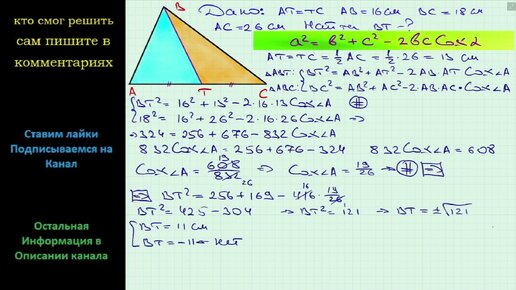 кто смог решить
сам пишите в
комментариях
Ставим лайки
Подписываемся на
Канал
Остальная
Информация в
Описании канала
B
A
T
C
Дано: AT=TC AB=16см BC=18см
AC=26см Найти BT-?
a²=b²+c²-2bc Cosα
AT=TC=½AC=½·26=13 см
△ABT: BT²=AB²+AT²-2AB·AT Cos∠A
△ABC: BC²=AB²+AC²-2·AB·AC·Cos∠A
BT²=16²+13²-2·16·13Cos∠A (#)
18²=16²+26²-2·16·26Cos∠A ⇒
⇒324=256+676-832Cos∠A
832Cos∠A=256+676-324 832Cos∠A=608
Cos∠A=608/832 19 26 ⇒ Cos∠A=19/26 → (#) ⇒
⇒ BT²=256+169-416·19/26 16
BT²=425-304 → BT²=121 → BT=±√121
BT=11см
BT=-11- нет